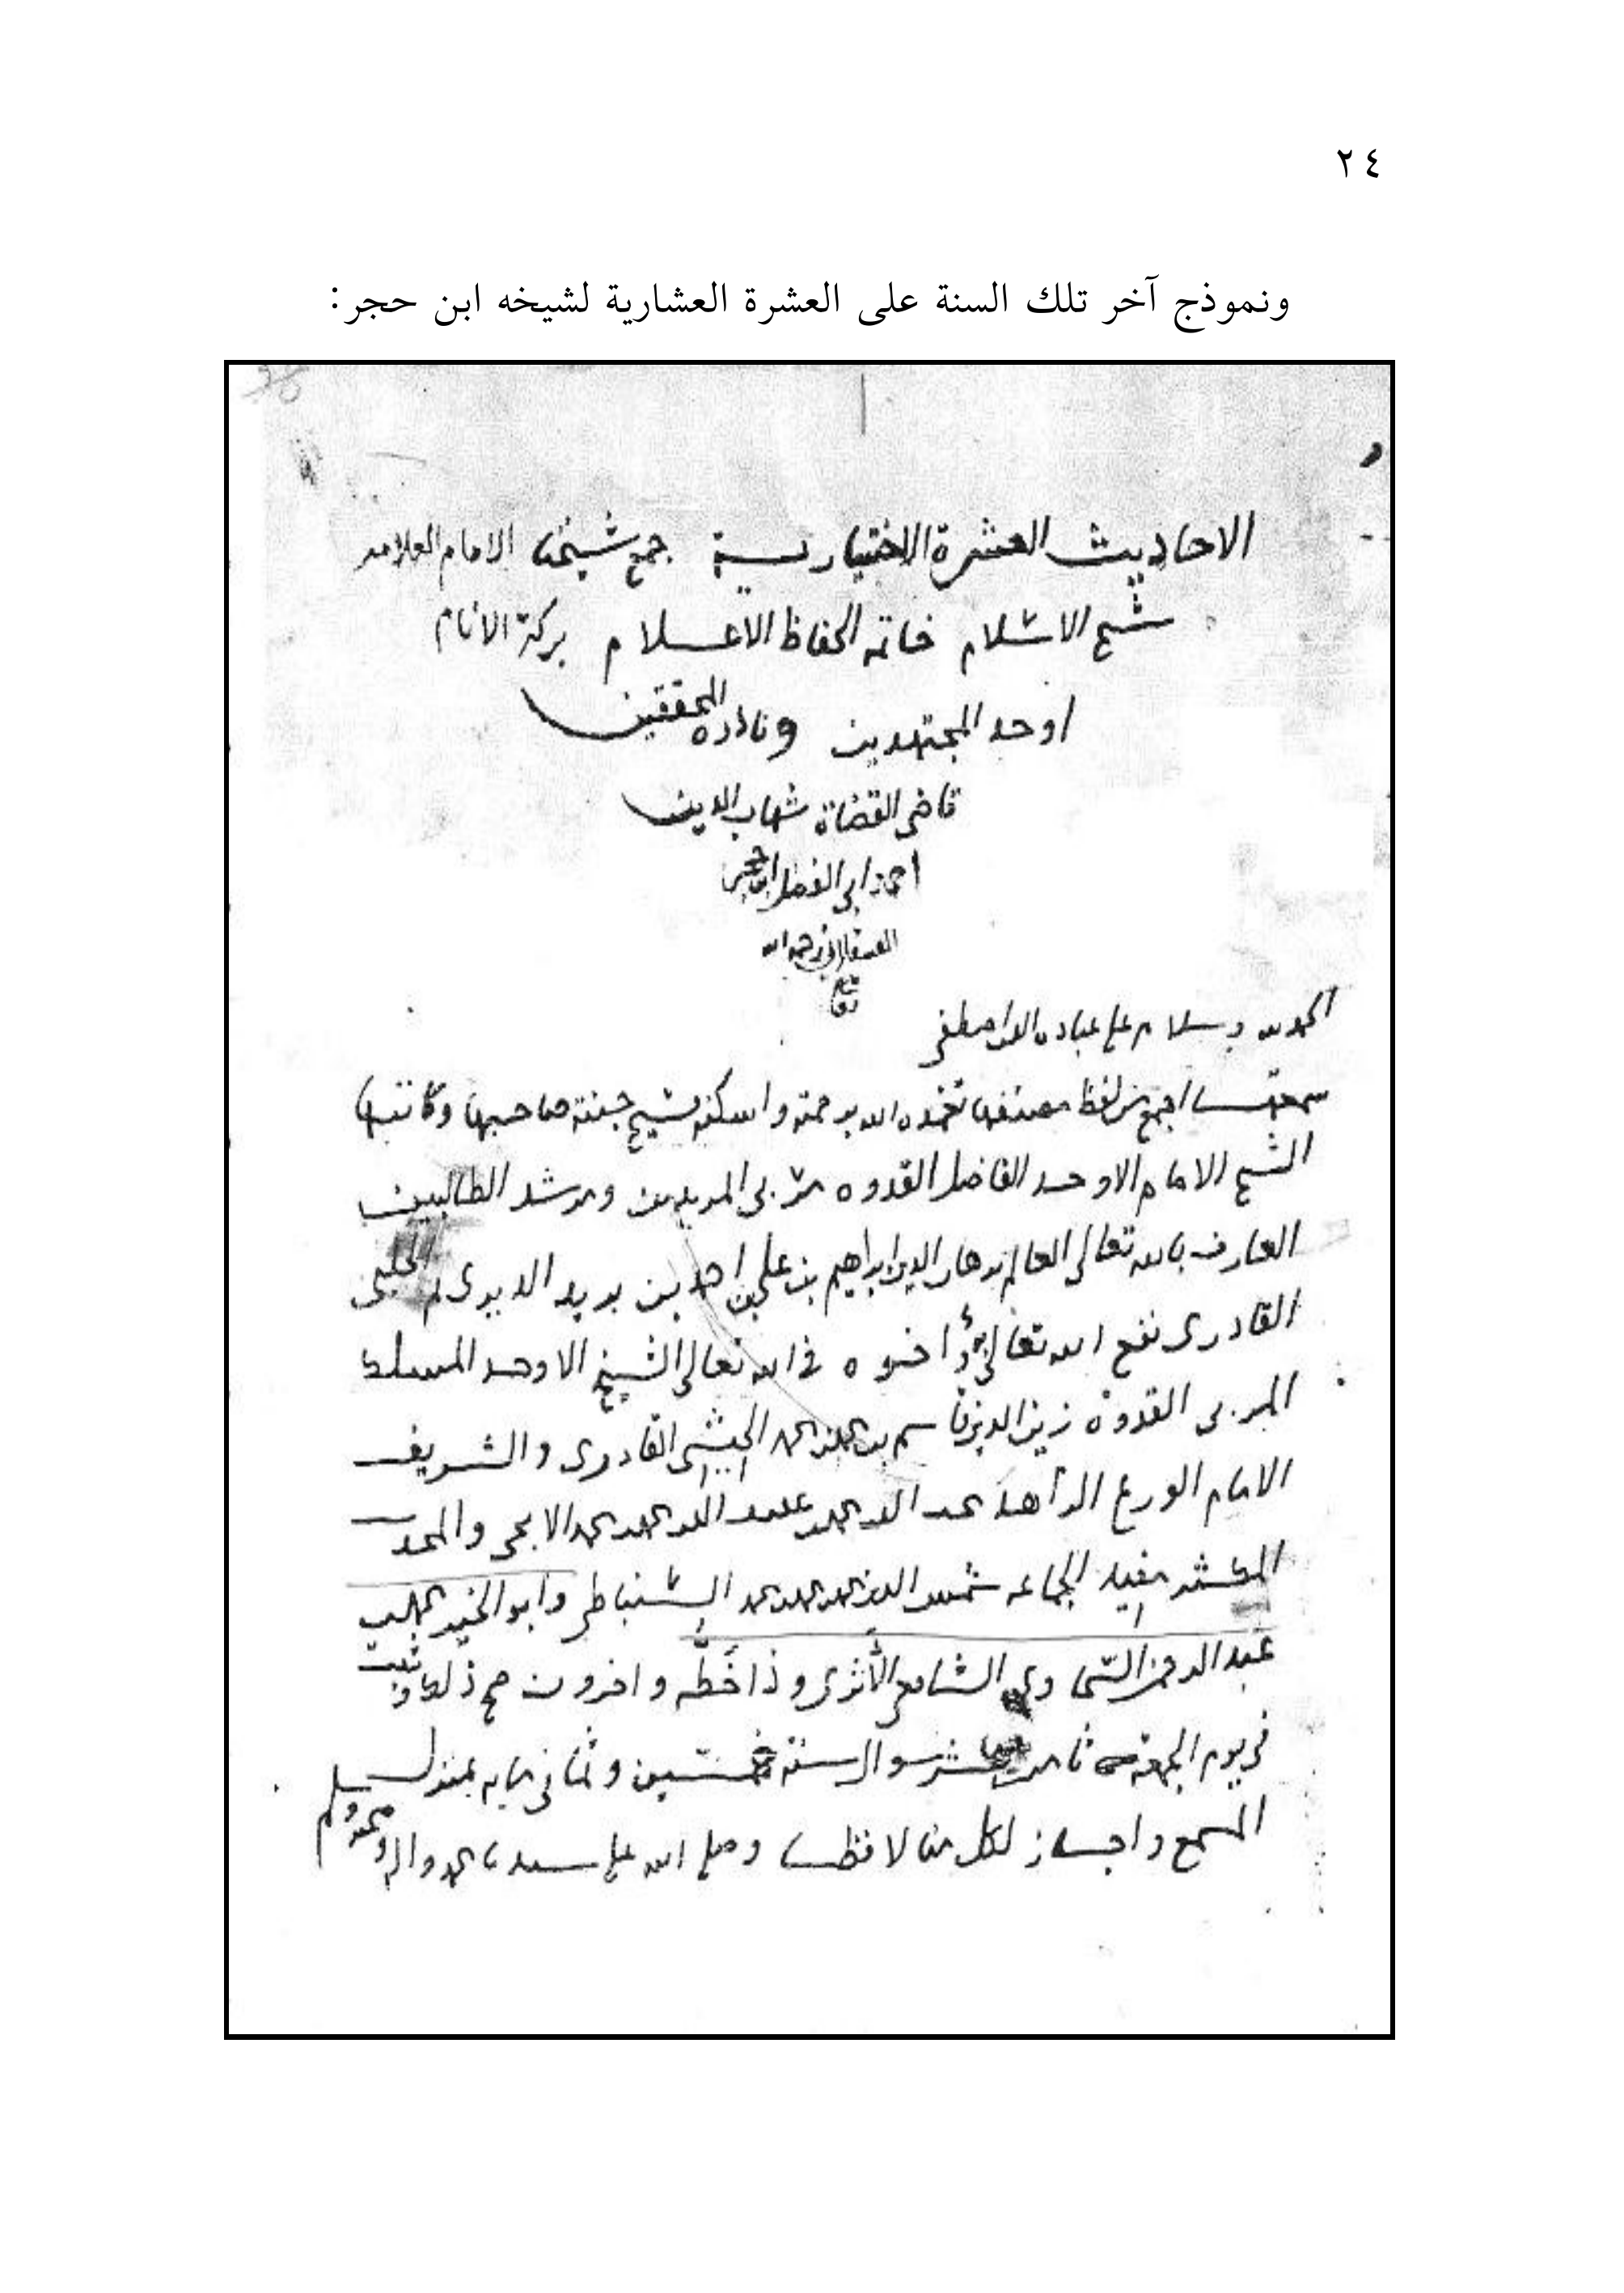 ٢٤
ونموذج آخر تلك السنة على العشرة العشارية لشيخه ابن حجر:
الاحاديث العشرة الاختيارية جمع شيخنا الامام العلامه
شيخ الاسلام خاتمه الحفاظ الاعلام بركة الانام
اوحد المجتهدين ونادره المحققين
قاضي القضاة شهاب الدين
احمد ابي الفضل ابن حجر
العسقلاني رحمه الله
تعالى
الحمد لله وسلام على عباده الذين اصطفى
سمعها اجمع من لفظ مصنفها تغمده الله برحمته واسكنه فسيح جنته صاحبها وكاتبها
الشيخ الامام الاوحد الفاضل القدوه مربي المريدين ومرشد الطالبين
العارف بالله تعالى العالم برهان الدين ابراهيم بن علي بن احمد بن بريد الديري الحلبي
القادري نفع الله تعالى به واخوه في الله تعالى الشيخ الاوحد المسلك
المربي القدوة زين الدين قاسم بن محمد الحبيشي القادري والشريف
الامام الورع الزاهد محمد الابجي والمحدث
المكثر مفيد الجماعه شمس الدين محمد بن محمد بن محمد السنباطي وابو الخير محمد بن
عبد الرحمن السخاوي الشافعي الاثري وذا خطه واخرون صح ذلك وثبت
في يوم الجمعة ثامن عشر شوال سنة خمسين وثماني مايه بمنزل
المسمع واجاز لكل منا لافظا وصلى الله على سيدنا محمد واله وصحبه وسلم